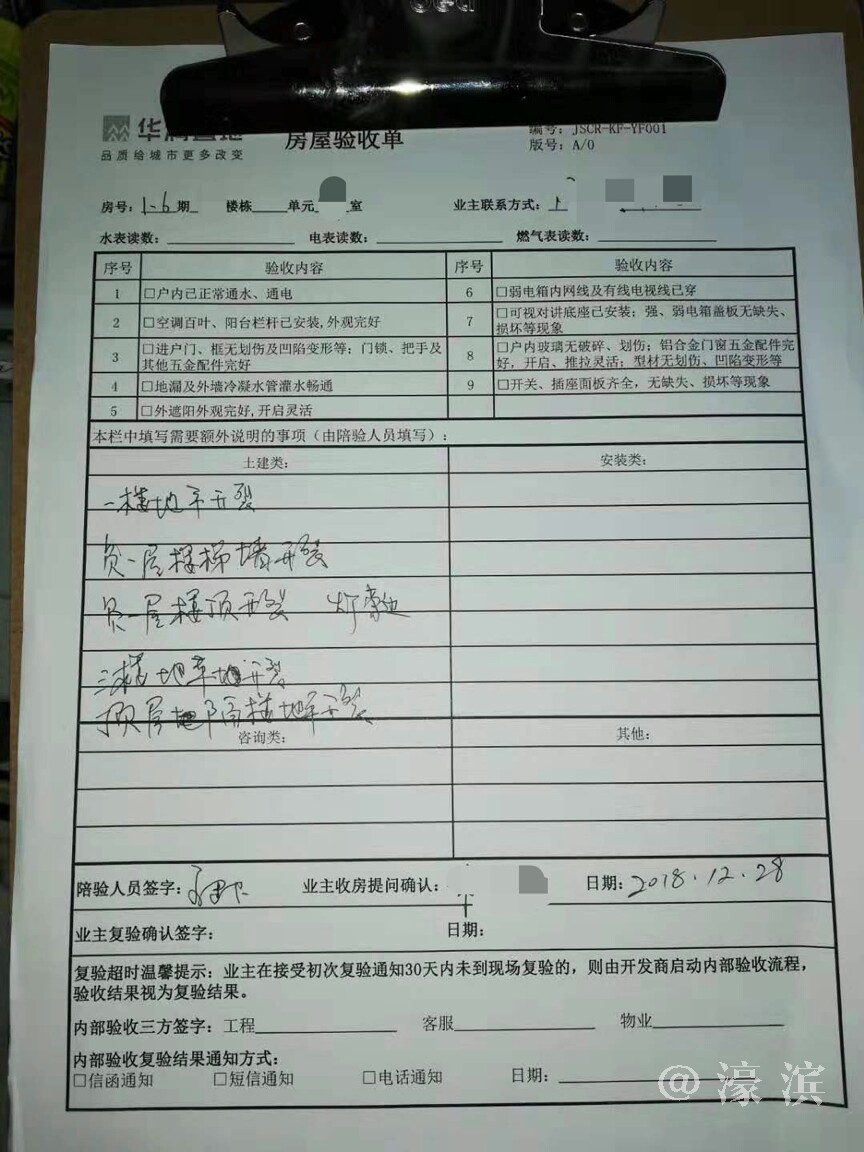 品质给城市更多改变
房屋验收单
编号: JSCR-KF-YF001
版号: A/0
房号: 1-6期 楼栋 单元 室 业主联系方式:
水表读数: 电表读数: 燃气表读数:
序号 验收内容 序号 验收内容
1 □户内已正常通水、通电 6 □弱电箱内网线及有线电视线已穿
2 □空调百叶、阳台栏杆已安装,外观完好 7 □可视对讲底座已安装;强、弱电箱盖板无缺失、
损坏等现象
3 □进户门、框无划伤及凹陷变形等;门锁、把手及
其他五金配件完好
8 □户内玻璃无破碎、划伤;铝合金门窗五金配件完
好,开启、推拉灵活;型材无划伤、凹陷变形等
4 □地漏及外墙冷凝水管灌水畅通 9 □开关、插座面板齐全,无缺失、损坏等现象
5 □外遮阳外观完好,开启灵活
本栏中填写需要额外说明的事项(由陪验人员填写):
土建类: 安装类:
一楼地平开裂
负一层楼梯墙开裂
负一层楼顶开裂
三楼地平地开裂
顶层 阁楼地平开裂
咨询类: 其他:
陪验人员签字: 业主收房提问确认: 日期: 2018.12.28
业主复验确认签字: 日期:
复验超时温馨提示:业主在接受初次复验通知30天内未到现场复验的,则由开发商启动内部验收流程,
验收结果视为复验结果。
内部验收三方签字:工程 客服 物业
内部验收复验结果通知方式:
□信函通知 □短信通知 □电话通知 日期:
@濠滨